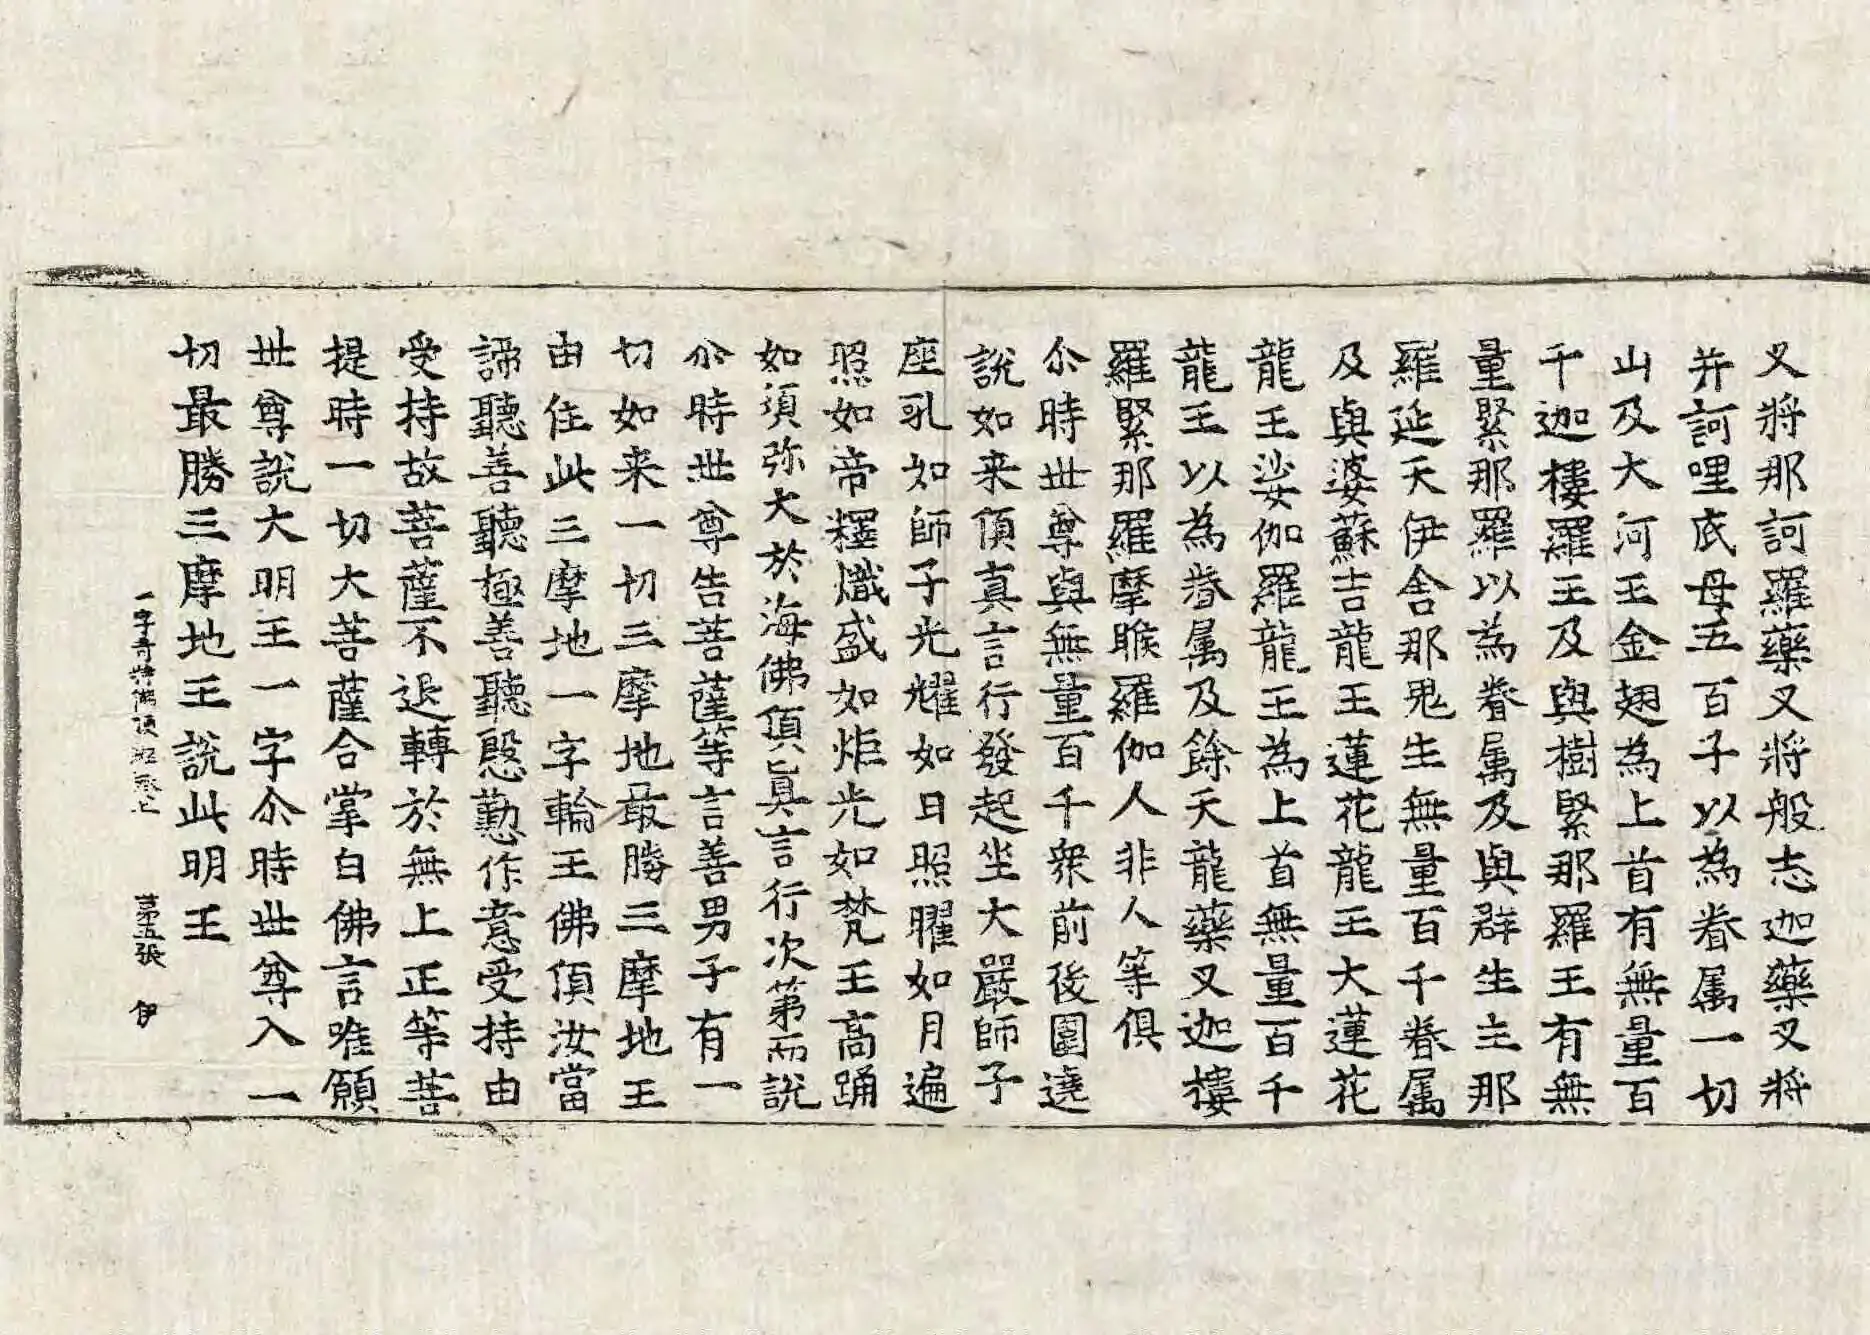 叉將那訶羅藥叉將般志迦藥叉將
并訶哩底母五百子以為眷属一切
山及大河王金翅為上首有無量百
千迦樓羅王及與樹緊那羅王有無
量緊那羅以為眷属及與群生主那
羅延天伊舍那鬼生無量百千眷属
及與婆蘇吉龍王蓮花龍王大蓮花
龍王娑伽羅龍王為上首無量百千
龍王以為眷属及餘天龍藥叉迦樓
羅緊那羅摩睺羅伽人非人等俱
尒時世尊與無量百千衆前後圍遶
說如来頂真言行發起坐大嚴師子
座乳如師子光耀如日照曜如月遍
照如帝釋熾盛如炬光如梵王高踊
如須弥大於海佛頂真言行次第而說
尒時世尊告菩薩等言善男子有一
切如来一切三摩地最勝三摩地王
由住此三摩地一字輪王佛頂汝當
諦聽善聽極善聽慇懃作意受持由
受持故菩薩不退轉於無上正等菩
提時一切大菩薩合掌白佛言唯願
世尊說大明王一字尒時世尊入一
切最勝三摩地王說此明王
一字奇特佛頂經卷上 苐五張 伊